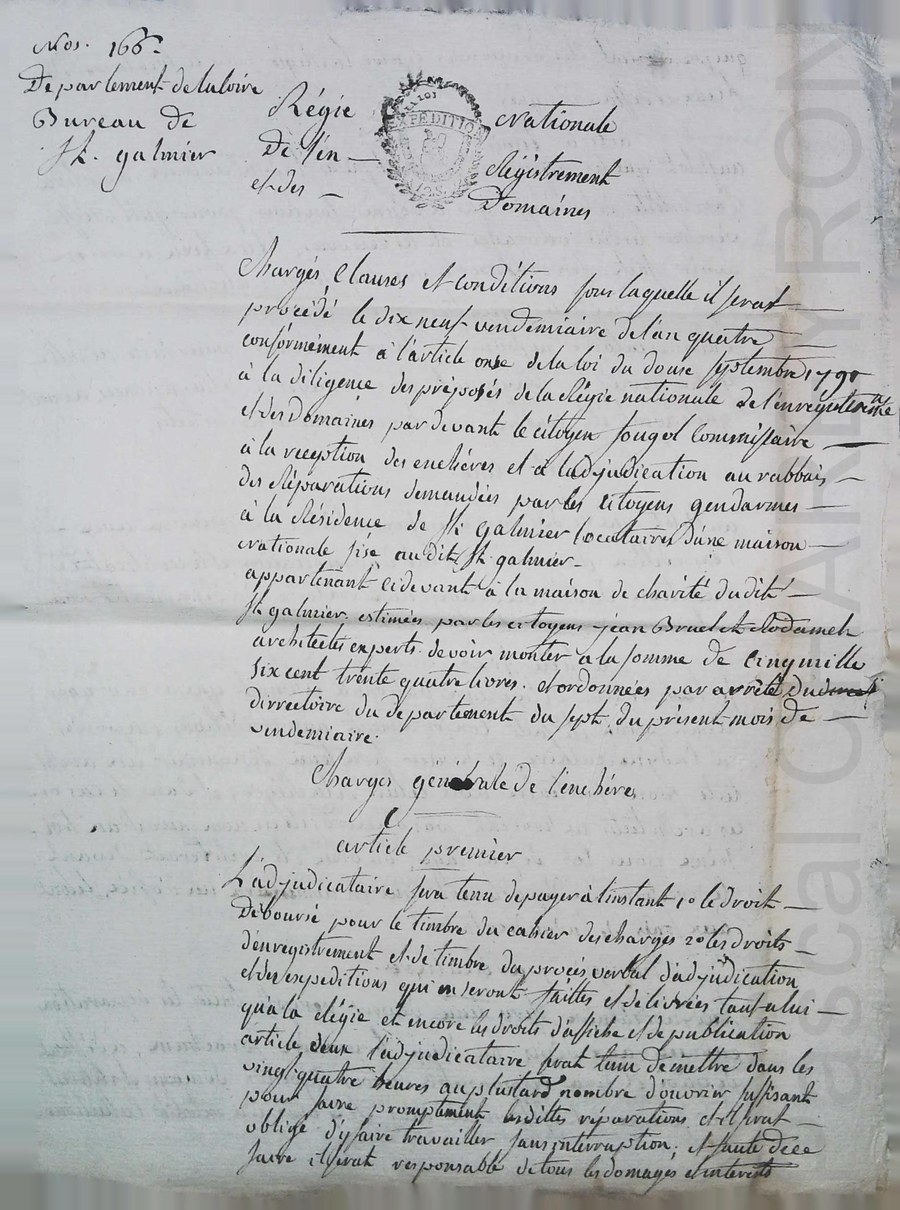 Nos. 166.
Departement de la loire
Bureau de
St. galmier
Régie Nationale
De l'en Régistrement
et des Domaines
LA LOI
EXPÉDITION
Charges Clauses et conditions sous laquelle il serat
procédé le dix neuf vendemiaire de l'an quatre
conformément à l'article onse de la loi du douse septembre 1791
à la diligence des préposés de la Régie nationale de l'enregistremt
et des Domaines par devant le citoyen Commissaire
à la reception des enchéres et à ladjudication au rabbais
des Réparations demandées par les citoyens gendarmes
à la Résidence de St. galmier locataires d'une maison
Nationale sise au dit St. galmier
appartenant cidevant à la maison de charité dudit
St galmier. estimées par les citoyens jean Bruel et
architectes experts. devoir monter à la somme de cinq mille
six cent trente quatre livres. et ordonnées par arrêté du
dirrectoire du departement du sept du présent mois de
vendemiaire.
Charges générale de l'enchére
article premier
L'adjudicataire sera tenu de payer à l'instant 1o le droit
Déboursé pour le timbre du cahier des charges 2o les droits
d'enregistrement et de timbre du procés verbal d'adjudication
et des expeditions qui en seront faittes et délivrées tant a lui
qu'a la Régie et encore les droits d'affiche et de publication
article deux l'adjudicataire serat tenu de mettre dans les
vingt quatre heures au plustard nombre d'ouvrier suffisant
pour faire promptement lesdittes réparations et il serat
obligé d'y faire travailler sans interruption; et faute de ce
faire il serat responsable de tous les domages et interêts
Pascal CHARLEYRON